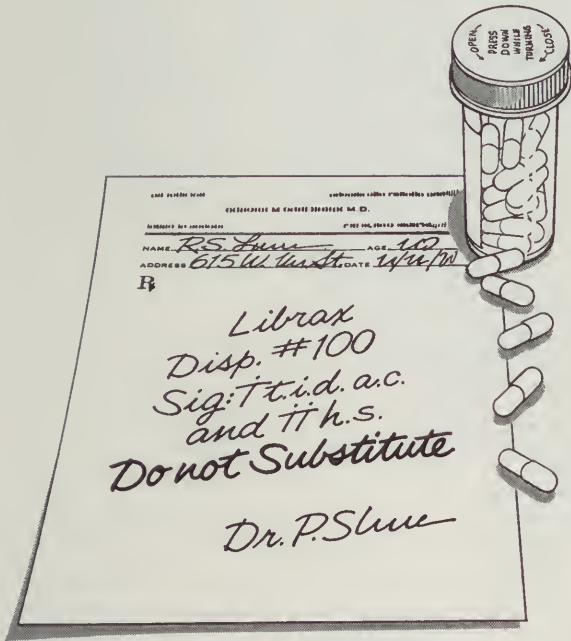 OPEN
PRESS
DOWN
WHILE
TURNING
CLOSE
M.D.
NAME R.S. AGE
ADDRESS 615 W. St. DATE
℞
Librax
Disp. #100
Sig: Ṫ t.i.d. a.c.
and ṪṪ h.s.
Do not Substitute
Dr. P. Shue